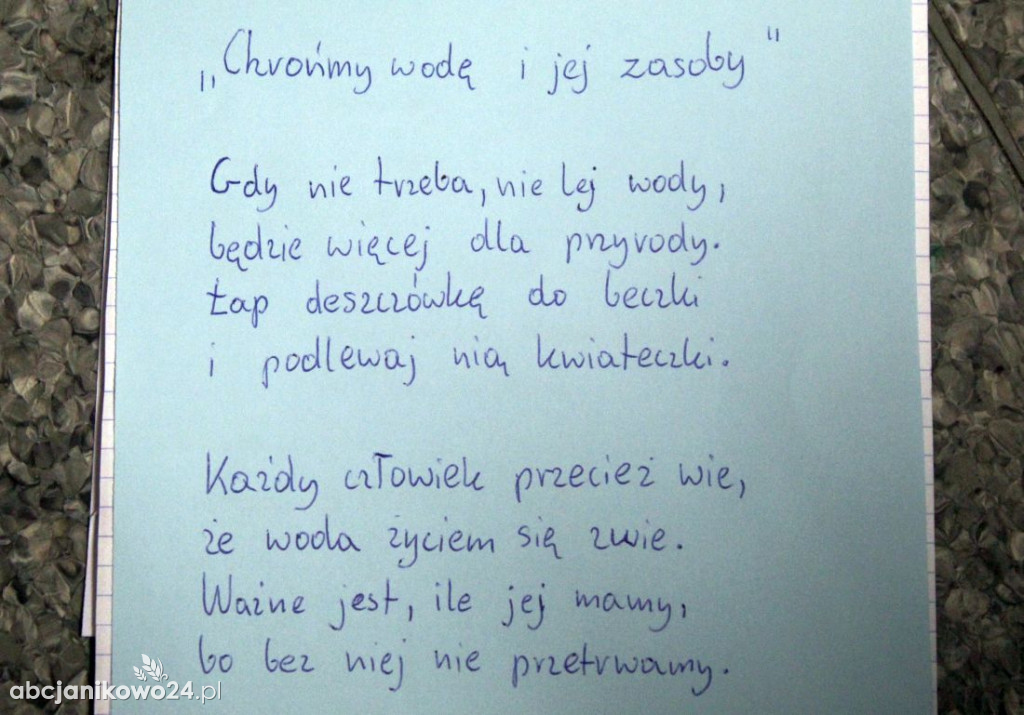 „Chrońmy wodę i jej zasoby"
Gdy nie trzeba, nie lej wody,
będzie więcej dla przyrody.
Łap deszczówkę do beczki
i podlewaj nią kwiateczki.
Każdy człowiek przecież wie,
że woda życiem się zwie.
Ważne jest, ile jej mamy,
bo bez niej nie przetrwamy.
abcjanikowo24.pl